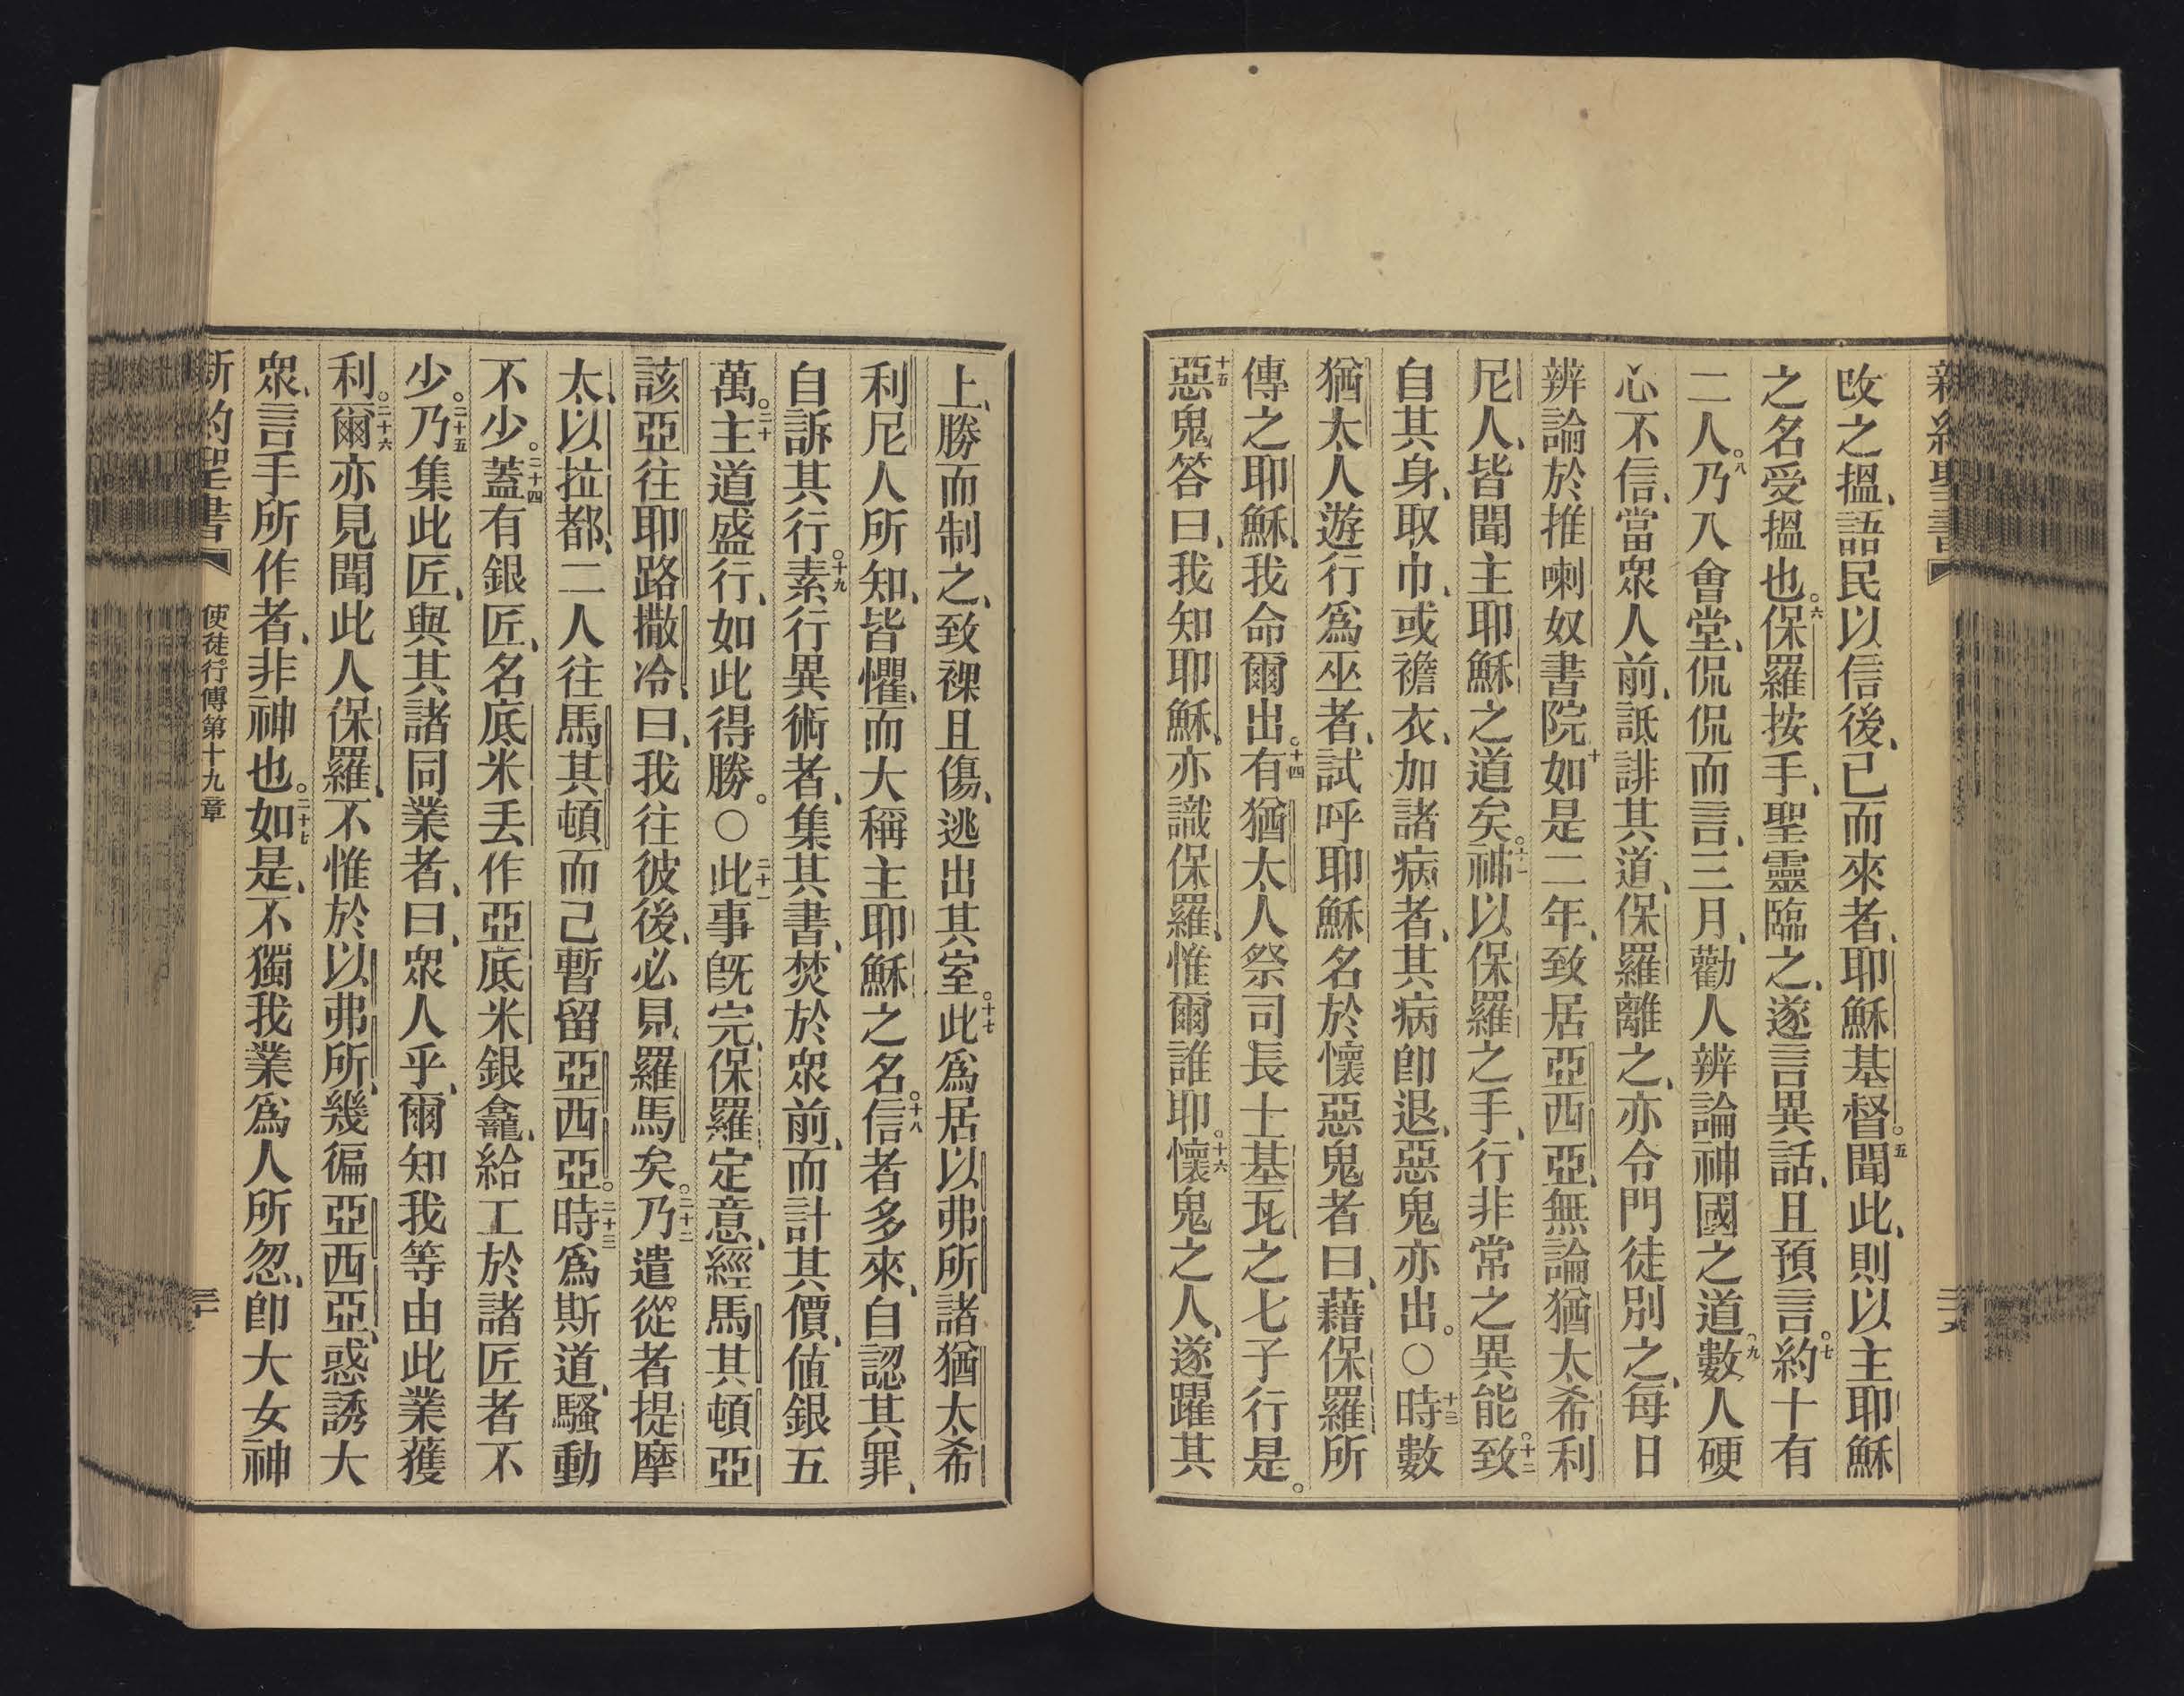 新約聖書
改之搵、語民以信後、已而來者、耶穌基督。五聞此、則以主耶穌
之名受搵也。六保羅按手、聖靈臨之、遂言異話、且預言。七約十有
二人。八乃入會堂、侃侃而言、三月、勸人辨論神國之道、九數人硬
心不信、當眾人前、詆誹其道、保羅離之、亦令門徒別之、每日
辨論於推喇奴書院、十如是二年、致居亞西亞、無論猶太希利
尼人、皆聞主耶穌之道矣。十一神以保羅之手、行非常之異能。十二致
自其身、取巾、或襜衣、加諸病者、其病卽退、惡鬼亦出。○十三時數
猶太人遊行爲巫者、試呼耶穌名於懷惡鬼者曰、藉保羅所
傳之耶穌、我命爾出。十四有猶太人祭司長士基瓦之七子行是。
十五惡鬼答曰、我知耶穌、亦識保羅、惟爾誰耶。十六懷鬼之人、遂躍其
上、勝而制之、致裸且傷、逃出其室。十七此爲居以弗所諸猶太希
利尼人所知、皆懼、而大稱主耶穌之名。十八信者多來、自認其罪、
自訴其行。十九素行異術者、集其書、焚於眾前、而計其價、値銀五
萬。二十主道盛行、如此得勝。○二十一此事旣完、保羅定意、經馬其頓亞
該亞往耶路撒冷、曰、我往彼後、必見羅馬矣。二十二乃遣從者提摩
太、以拉都、二人往馬其頓而己暫留亞西亞。二十三時爲斯道、騷動
不少。二十四蓋有銀匠、名底米丢作亞底米銀龕、給工於諸匠者不
少。二十五乃集此匠、與其諸同業者、曰、眾人乎、爾知我等由此業獲
利。二十六爾亦見聞此人保羅、不惟於以弗所、幾徧亞西亞、惑誘大
眾、言手所作者、非神也。二十七如是、不獨我業爲人所忽、卽大女神
新約聖書 使徒行傳第十九章 三十